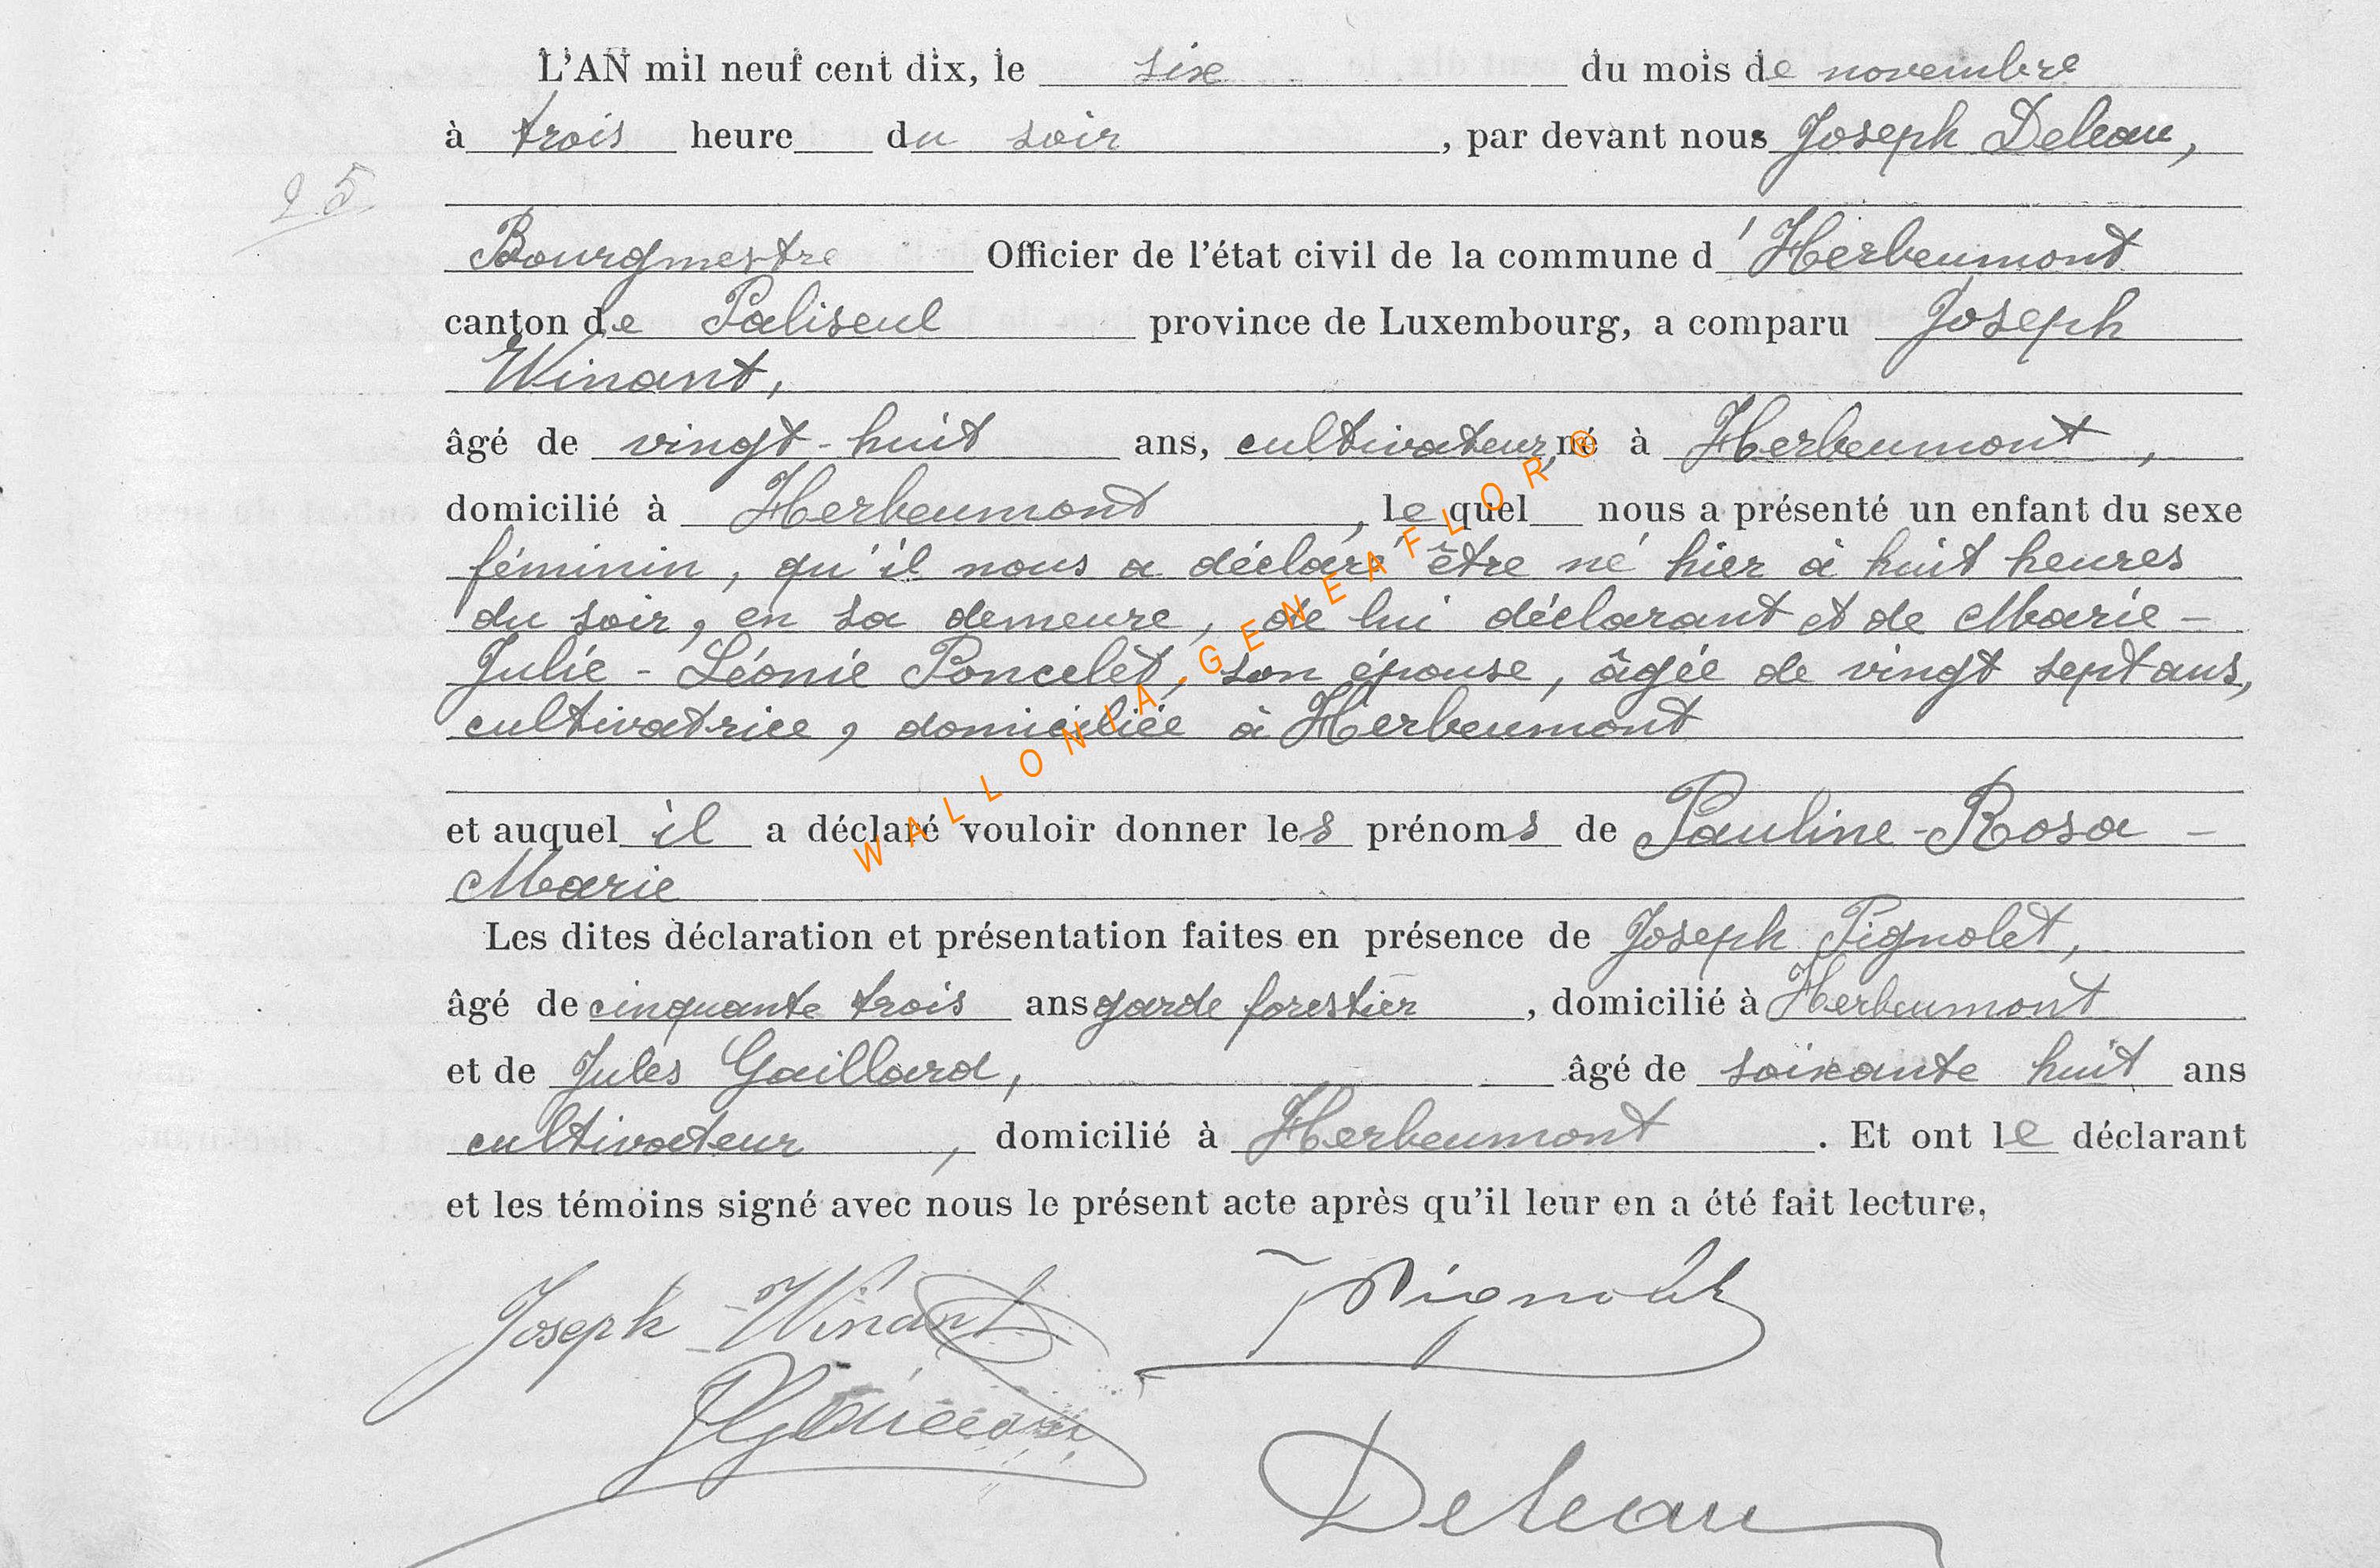 L'AN mil neuf cent dix, le six du mois de novembre
à trois heure du soir, par devant nous Joseph Deleau,
25
Bourgmestre Officier de l'état civil de la commune d'Herbeumont
canton de Paliseul province de Luxembourg, a comparu Joseph
Winant,
âgé de vingt-huit ans, cultivateur, né à Herbeumont,
domicilié à Herbeumont, le quel nous a présenté un enfant du sexe
féminin, qu'il nous a déclaré être né hier à huit heures
du soir, en sa demeure, de lui déclarant et de Marie-
Julie-Léonie Poncelet, son épouse, âgée de vingt sept ans,
cultivatrice, domiciliée à Herbeumont
et auquel il a déclaré vouloir donner les prénoms de Pauline-Rosa-
Marie
Les dites déclaration et présentation faites en présence de Joseph Pignolet,
âgé de cinquante trois ans garde forestier, domicilié à Herbeumont
et de Jules Gaillard, âgé de soixante huit ans
cultivateur, domicilié à Herbeumont. Et ont le déclarant
et les témoins signé avec nous le présent acte après qu'il leur en a été fait lecture,
Joseph Winant
J Pignolet
Deleau
WALLONIA-GENEAFLOR®